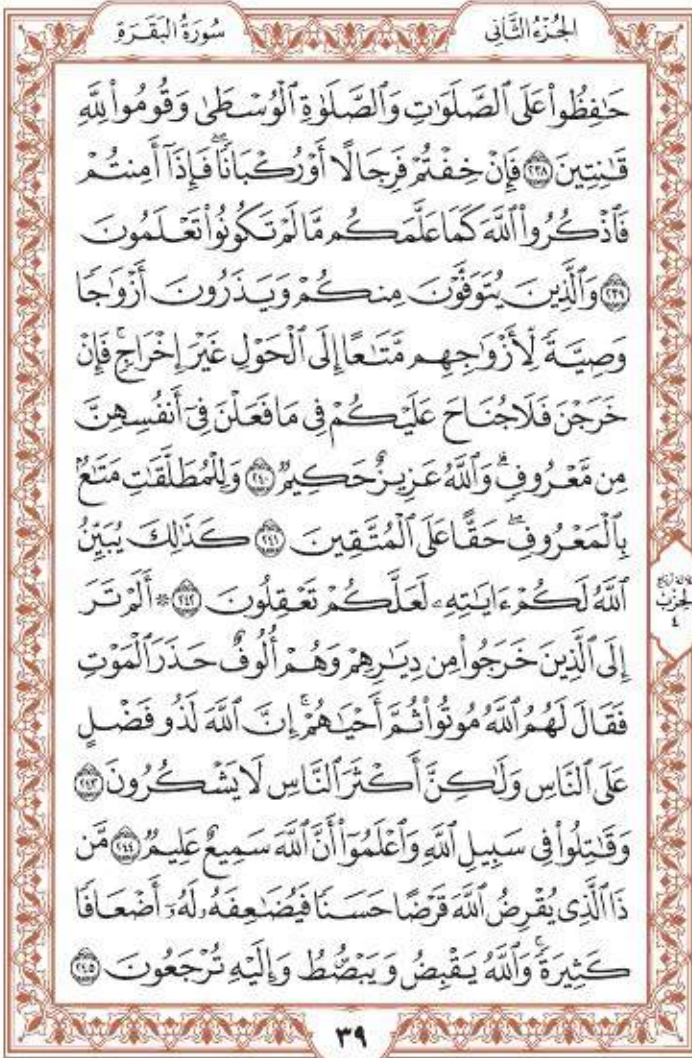 سُورَةُ البَقَرَةِ
الجُزْءُ الثَّانِي
حَٰفِظُواْ عَلَى ٱلصَّلَوَٰتِ وَٱلصَّلَوٰةِ ٱلْوُسْطَىٰ وَقُومُواْ لِلَّهِ
قَٰنِتِينَ ٢٣٨ فَإِنْ خِفْتُمْ فَرِجَالًا أَوْ رُكْبَانًاۖ فَإِذَآ أَمِنتُمْ
فَٱذْكُرُواْ ٱللَّهَ كَمَا عَلَّمَكُم مَّا لَمْ تَكُونُواْ تَعْلَمُونَ
٢٣٩ وَٱلَّذِينَ يُتَوَفَّوْنَ مِنكُمْ وَيَذَرُونَ أَزْوَٰجًا
وَصِيَّةً لِّأَزْوَٰجِهِم مَّتَٰعًا إِلَى ٱلْحَوْلِ غَيْرَ إِخْرَاجٍۚ فَإِنْ
خَرَجْنَ فَلَا جُنَاحَ عَلَيْكُمْ فِي مَا فَعَلْنَ فِيٓ أَنفُسِهِنَّ
مِن مَّعْرُوفٍۗ وَٱللَّهُ عَزِيزٌ حَكِيمٌ ٢٤٠ وَلِلْمُطَلَّقَٰتِ مَتَٰعٌۢ
بِٱلْمَعْرُوفِۖ حَقًّا عَلَى ٱلْمُتَّقِينَ ٢٤١ كَذَٰلِكَ يُبَيِّنُ
ٱللَّهُ لَكُمْ ءَايَٰتِهِۦ لَعَلَّكُمْ تَعْقِلُونَ ٢٤٢ ۞ أَلَمْ تَرَ
إِلَى ٱلَّذِينَ خَرَجُواْ مِن دِيَٰرِهِمْ وَهُمْ أُلُوفٌ حَذَرَ ٱلْمَوْتِ
فَقَالَ لَهُمُ ٱللَّهُ مُوتُواْ ثُمَّ أَحْيَٰهُمْۚ إِنَّ ٱللَّهَ لَذُو فَضْلٍ
عَلَى ٱلنَّاسِ وَلَٰكِنَّ أَكْثَرَ ٱلنَّاسِ لَا يَشْكُرُونَ ٢٤٣
وَقَٰتِلُواْ فِي سَبِيلِ ٱللَّهِ وَٱعْلَمُوٓاْ أَنَّ ٱللَّهَ سَمِيعٌ عَلِيمٌ ٢٤٤ مَّن
ذَا ٱلَّذِي يُقْرِضُ ٱللَّهَ قَرْضًا حَسَنًا فَيُضَٰعِفَهُۥ لَهُۥٓ أَضْعَافًا
كَثِيرَةًۚ وَٱللَّهُ يَقْبِضُ وَيَبْصُۜطُ وَإِلَيْهِ تُرْجَعُونَ ٢٤٥
الحِزْب
٤
٣٩